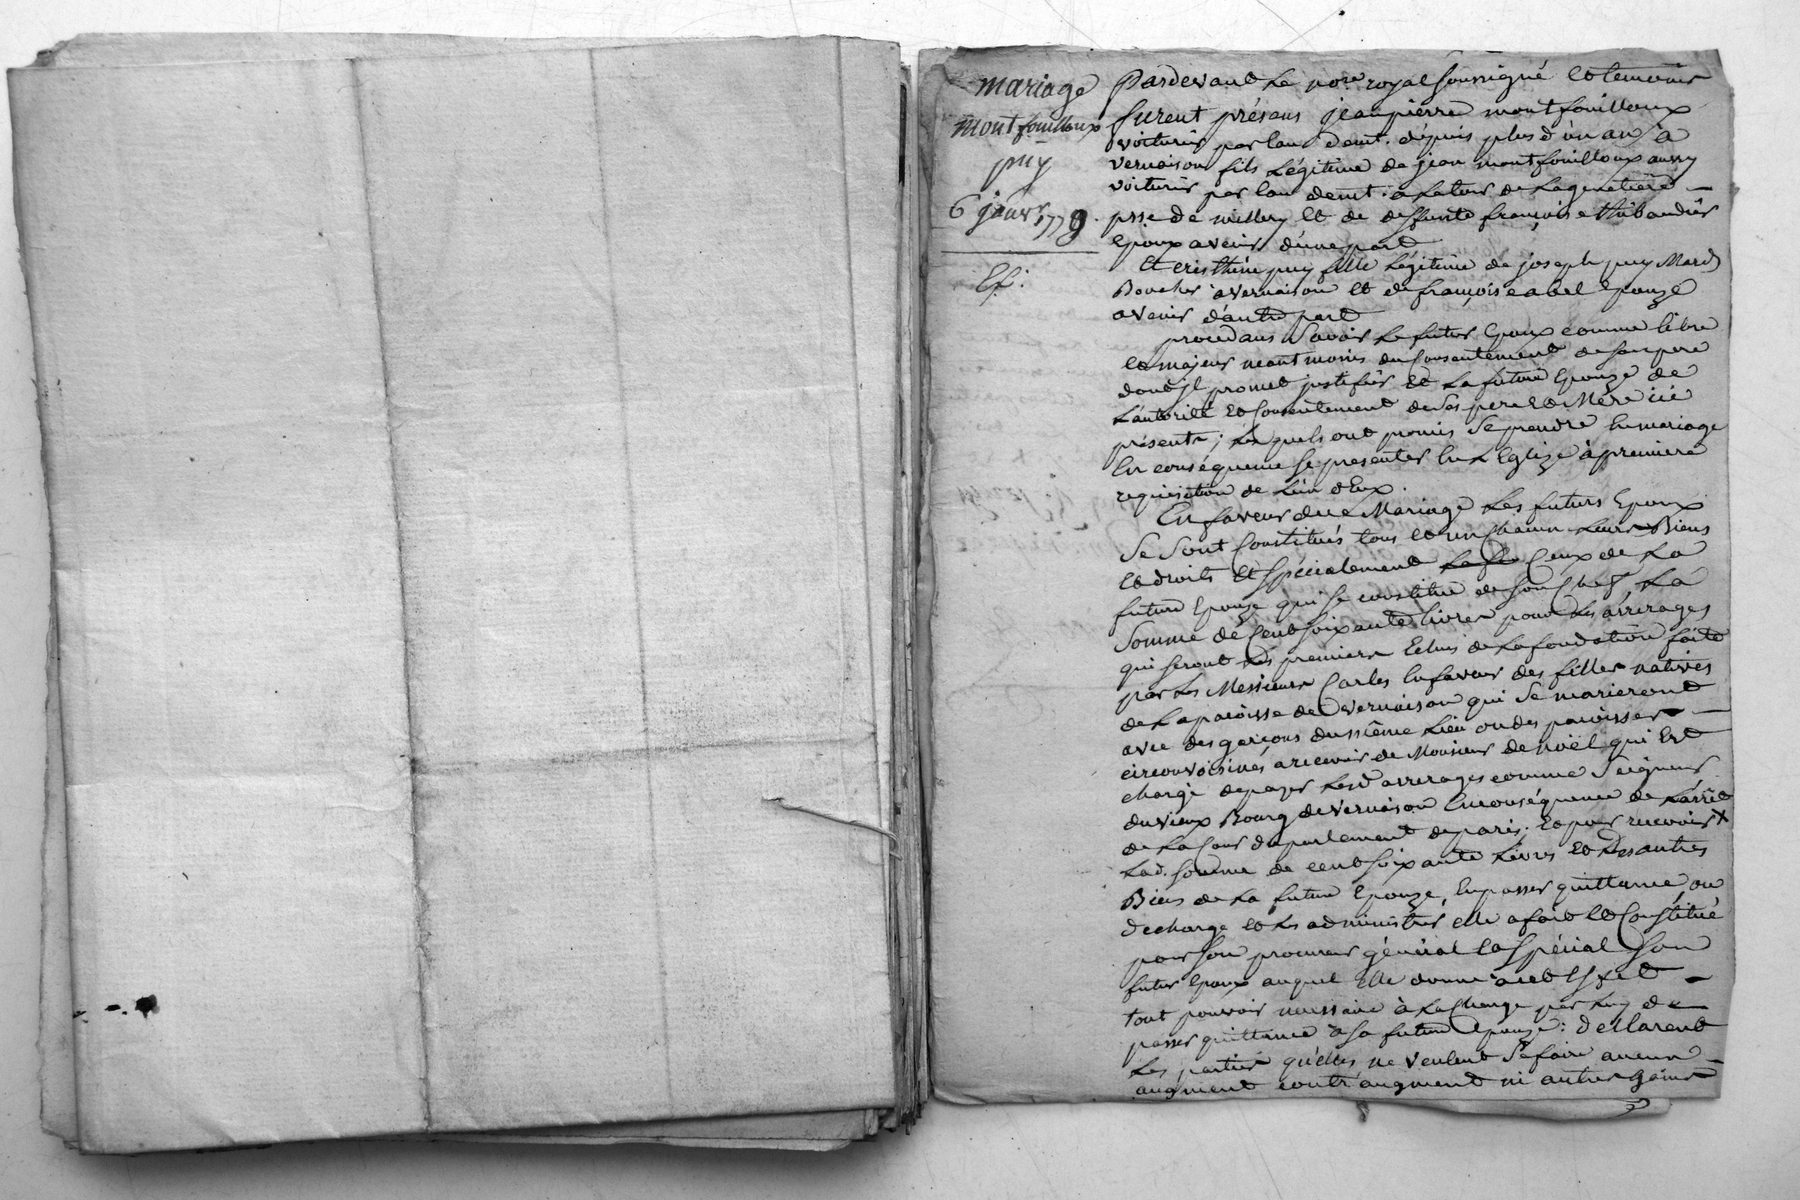 mariage
montfouilloux
puy
6 janvr. 1779.
Ef.
Pardevant Le nore. royal soussigné Et temoins
furent présens jeanpierre montfouilloux
voiturier par eau demt. dépuis plus d'un an à
vernaison fils Légitime de jean montfouilloux aussy
voiturier par eau demt. à La tour de
psse de millery Et de deffunte françoise thibaudier
Epoux avenir d'une part
Et cristhine puy fille Légitime de joseph puy Mard
Boucher a vernaison Et de françoise abel Epouze
avenir d'autre part
procedans Savoir Le futur Epoux comme libre
Et majeur neantmoins du Consentement de son pere
dont jl promet justifier Et La future Epouze de
L'autorité Et Consentement de Ses pere Et Mere icie
présents; Les quels ont promis Se prendre En mariage
En conséquence se presenter En L'Eglize à premiere
requisition de L'un d'Eux.
En faveur du Mariage Les futurs Epoux
Se Sont Constitués tous Et un Chacun Leurs Biens
Et droits Et Spécialement Ceux de La
future Epouze qui se constitue de son Chef La
Somme de Cent soixante Livres pour Les arrerages
qui seront Les premiers Echus de La fondation faite
par Les Messieurs Carles En faveur des filles natives
de La paroisse de vernaison qui Se marieront
avec des garçons du même Lieu ou des paroisses
circonvoisines, a recevoir de Monsieur de noël qui Est
chargé depayer Lesd. arrerages comme Seigneur
du vieux Bourg de vernaison En conséquence de L'arrêt
de La Cour du parlement de paris. Et pour recevoir
Lad. somme de cent soixante Livres Et Les autres
Biens de La future Epouze, En passer quittance, ou
decharge Et Les administrer, elle a fait Et Constitué
pour son procureur général Et Spécial Son
futur Epoux auquel Elle donne
tout pouvoir necessaire à La Charge par Luy de
passer quittance à Sa future Epouze: declarent
Les parties qu'elles ne veulent Se faire aucun
augment contr'augment ni autres gains